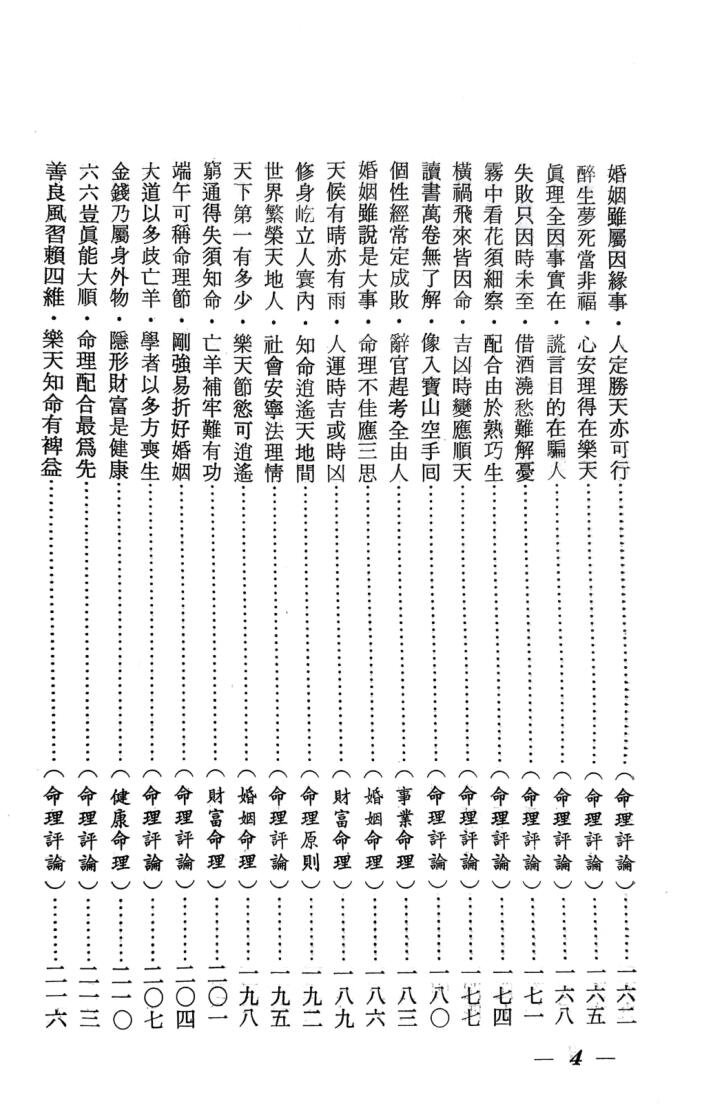 婚姻雖屬因緣事・人定勝天亦可行……（命理評論）……一六二
醉生夢死當非福・心安理得在樂天……（命理評論）……一六五
眞理全因事實在・謊言目的在騙人……（命理評論）……一六八
失敗只因時未至・借酒澆愁難解憂……（命理評論）……一七一
霧中看花須細察・配合由於熟巧生……（命理評論）……一七四
橫禍飛來皆因命・吉凶時變應順天……（命理評論）……一七七
讀書萬卷無了解・像入寶山空手囘……（命理評論）……一八〇
個性經常定成敗・辭官趕考全由人……（事業命理）……一八三
婚姻雖說是大事・命理不佳應三思……（婚姻命理）……一八六
天候有晴亦有雨・人運時吉或時凶……（財富命理）……一八九
修身屹立人寰內・知命逍遙天地間……（命理原則）……一九二
世界繁榮天地人・社會安寧法理情……（命理評論）……一九五
天下第一有多少・樂天節慾可逍遙……（婚姻命理）……一九八
窮通得失須知命・亡羊補牢難有功……（財富命理）……二〇一
端午可稱命理節・剛強易折好婚姻……（命理評論）……二〇四
大道以多歧亡羊・學者以多方喪生……（命理評論）……二〇七
金錢乃屬身外物・隱形財富是健康……（健康命理）……二一〇
六六豈眞能大順・命理配合最爲先……（命理評論）……二一三
善良風習賴四維・樂天知命有裨益……（命理評論）……二一六
— 4 —